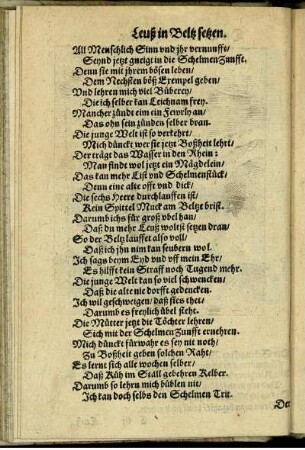 Leuß in Beltz setzen.
All Menschlich Sinn vnd jhr vernunfft/
Seynd jetzt gneigt in die Schelmen Zunfft.
Denn sie mit jhrem bösen leben/
Dem Nechsten böß Exempel geben/
Vnd lehren mich viel Büberey/
Die ich selber kan Leichnam frey.
Mancher zündt eim ein Fewrly an/
Das ohn sein zünden selber bran.
Die junge Welt ist so verkehrt/
Mich dünckt wer sie jetzt Boßheit lehrt/
Der trägt das Wasser in den Rhein:
Man findt wol jetzt ein Mägdelein/
Das kan mehr List vnd Schelmenstück/
Denn eine alte offt vnd dick/
Die sechs Heere durchlauffen ist/
Kein Spittel Muck am Beltz brist.
Darumb ichs für groß vbel han/
Daß du mehr Leuß wolst setzen dran/
So der Beltz lauffet also voll/
Daß ich jhn nim kan seubern wol.
Ich sags beym Eyd vnd vff mein Ehr/
Es hilfft kein Straff noch Tugend mehr.
Die junge Welt kan so viel schwencken/
Daß die alte nie dorfft gedencken.
Ich wil geschweigen/ daß sies thet/
Darumb es freylich übel steht.
Die Mütter jetzt die Töchter lehren/
Sich mit der Schelmen Zunfft ernehren.
Mich dünckt fürwahr es sey nit noch/
Zu Boßheit geben solchen Raht/
Es lernt sich alle wochen selber/
Daß Küh im Stall gebehren Kelber.
Darumb so lehrn mich büblen nit/
Ich kan doch selbs den Schelmen Trit.